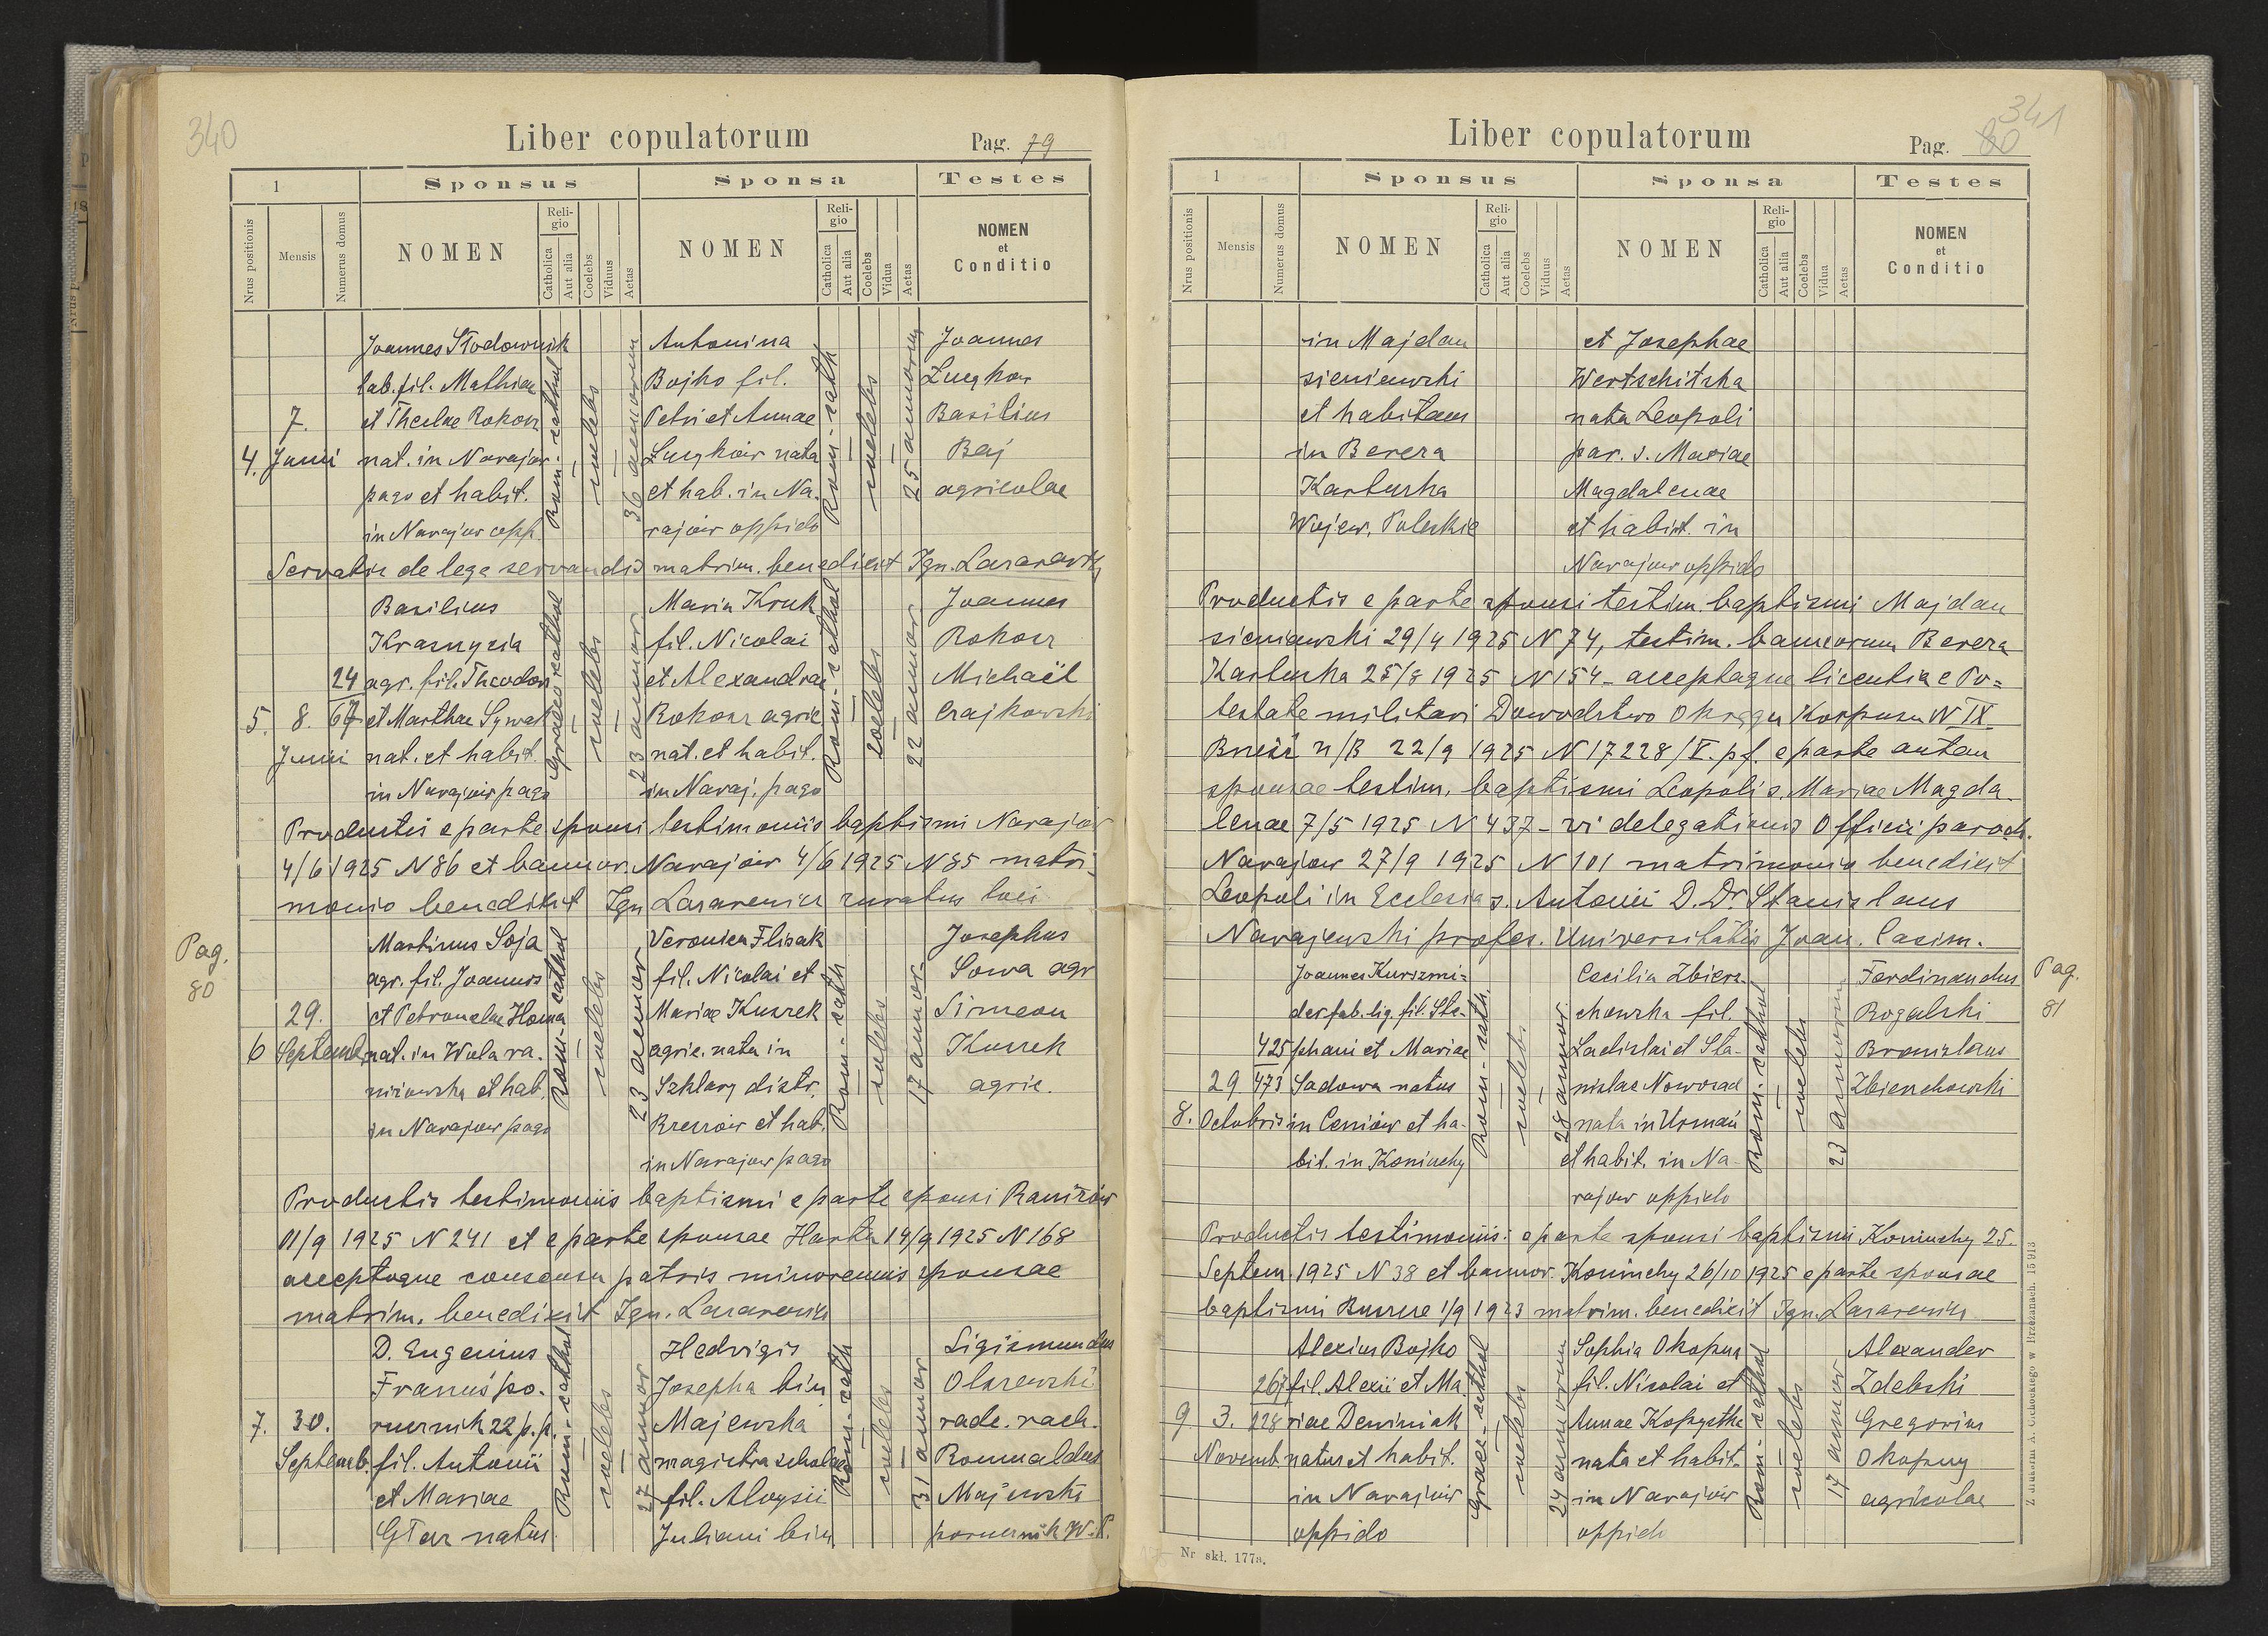 340
Liber copulatorum
Pag. 79
1
Sponsus
Sponsa
Testes
Nrus positionis
Mensis
Numerus domus
NOMEN
Religio
Catholica
Aut alia
Coelebs
Viduus
Aetas
NOMEN
Religio
Catholica
Aut alia
Coelebs
Vidua
Aetas
NOMEN
et
Conditio
4.
7.
Junii
Joannes Słodownik
lab. fil. Mathiae
et Theclae Rokosz
nat. in Narajow
pago et habit.
in Narajow opp.
Rom-cathol
coelebs
36 annorum
Antonina
Bojko fil.
Petri et Annae
nata
et hab. in Na-
rajow oppido
Rom-cath
coelebs
25 annorum
Joannes
Basilius
Baj
agricolae
Servatis de lege servandis matrim. benedixit Ign. Lazarewicz
5.
8.
Junii
24
67
Basilius
agr. fil. Theodori
et Marthae Sywak
nat. et habit.
in Narajow pago
Graeco cathol
coelebs
23 annor
Maria Kruk
fil. Nicolai
et Alexandrae
Rokosz agric
nat. et habit.
in Naraj. pago
Rom-cathol
coelebs
22 annor
Joannes
Rokosz
Michaël
Czajkowski
Productis e parte sponsi testimoniis baptismi Narajow
4/6 1925 N 86 et bannor. Narajow 4/6 1925 N 85 matri-
monio benedixit Ign Lazarewicz curatus loci
Pag.
80
6
29.
Septemb.
Martinus Soja
agr. fil. Joannis
et Petronelae Homa
nat. in Wola ra-
niżowska et hab.
in Narajow pago
Rom-cathol
coelebs
23 annor
Veronica Flisak
fil. Nicolai et
Mariae Kuszek
agric. nata in
Szklary distr.
Rzeszów et hab.
in Narajow pago
Rom-cath
coelebs
17 annor
Josephus
Sowa agr
Simeon
Kuszek
agric.
Productis testimoniis baptismi e parte sponsi Raniżów
11/9 1925 N 241 et e parte sponsae Harta 14/9 1925 N 168
acceptoque consensu patris minorennis sponsae
matrim. benedixit Ign. Lazarewicz
7.
30.
Septemb.
D. Eugenius
Franuś po-
rucznik 22 p. p.
fil. Antonii
et Mariae
natus
Rom-cathol
coelebs
27 annor
Hedvigis
Josepha bin
Majewska
magistra scholae
fil. Aloysii
Juliani bin
Rom-cath
coelebs
31 annor
Sigismundus
Olszewski
radc. rach.
Romualdus
Majewski
porucznik W. P.
341
Liber copulatorum
Pag. 80
1
Sponsus
Sponsa
Testes
Nrus positionis
Mensis
Numerus domus
NOMEN
Religio
Catholica
Aut alia
Coelebs
Viduus
Aetas
NOMEN
Religio
Catholica
Aut alia
Coelebs
Vidua
Aetas
NOMEN
et
Conditio
in Majdan
sieniewski
et habitans
in Bereza
Kartuska
Wojew. Poleskie
et Josephae
Wertschitzka
nata Leopoli
par. s. Mariae
Magdalenae
et habit. in
Narajow oppido
Productis e parte sponsi testim. baptismi Majdan
sieniawski 29/4 1925 N 74, testim. bannorum Bereza
Kartuska 25/8 1925 N 154 - acceptaque licentia e Po=
testate militari Dowodztwo Okręgu Korpusu N IX
Brześć n/B 22/9 1925 N 17228/I. pf. e parte autem
sponsae testim. baptismi Leopoli s. Mariae Magda-
lenae 7/5 1925 N 437 - vi delegationis Officii paroch.
Narajow 27/9 1925 N 101 matrimonio benedixit
Leopoli in Ecclesia s. Antonii D. Dr. Stanislaus
Narajewski profes. Universitatis Joan. Casim.
Pag.
81
8.
29
Octobris
425
473
Joannes Kurszmi=
der fab. lig. fil. Ste-
phani et Mariae
Sadowa natus
in Ceniów et ha-
bit. in Koniuchy
Rom-cath.
coelebs
28 annor.
Cecilia Zbierz-
chowska fil.
Ladislai et Sta-
nislae Noworad
nata in Urmań
et habit. in Na-
rajow oppido
Rom-cathol
coelebs
23 annorum
Ferdinandus
Rogalski
Bronislaus
Zbierzchowski
Productis testimoniis: e parte sponsi baptismi Koniuchy 25.
Septem. 1925 N 38 et bannor. Koniuchy 26/10 1925 e parte sponsae
baptismi Buszcze 1/9 1923 matrim. benedixit Ign. Lazarewicz
9
3.
Novemb.
267
228
Alexius Bojko
fil. Alexii et Ma
riae Deminiak
natus et habit.
in Narajów
oppido
Graec-cathol
coelebs
24 annorum
Sophia Okopna
fil. Nicolai et
Annae Kopystka
nata et habit.
in Narajów
oppido
Rom-cathol
coelebs
17 annor
Alexander
Zdebski
Gregorius
Okopny
agricolae
Nr skł. 177a.
Z drukarni A. Cichockiego w Brzeżanach. 15913